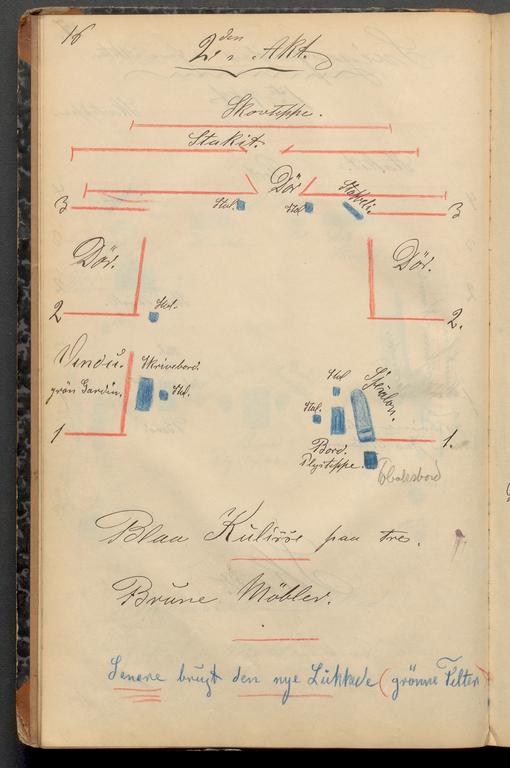 16
2den Akt.
Skovteppe.
Stakit.
Dör
Stol.
Stol.
3
3
Dör.
Dör.
2
Stol.
2.
Vindu.
grön Gardin.
Skrivebord.
Stol.
Stol
Stol.
1
1.
Bord.
Plysteppe.
Blaa Kulisse paa tre.
Brune Möbler.
Senere brugt den nye Lukkede (grönne Felter)